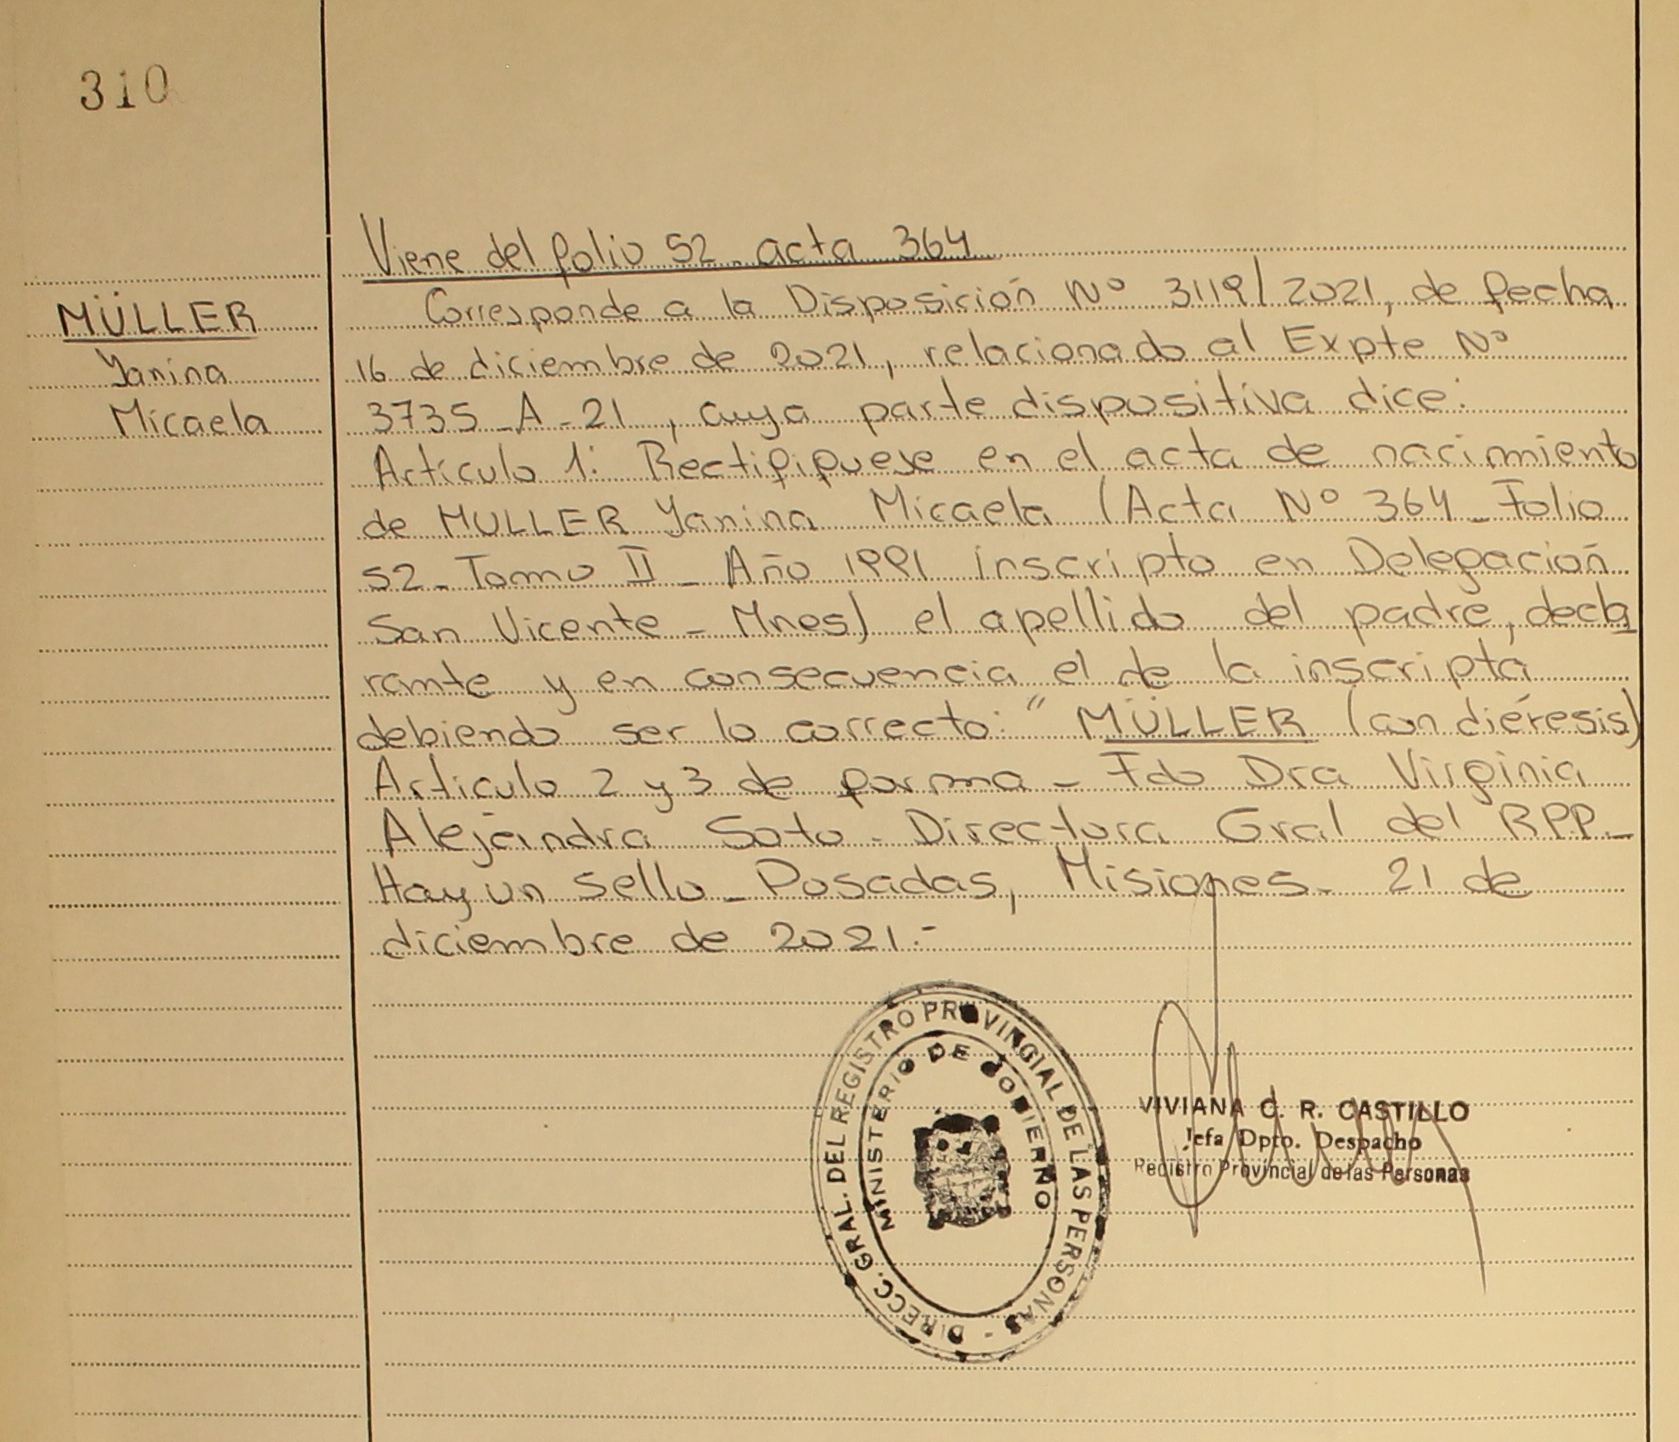 310
Viene del folio 52 - acta 364
MÜLLER
Yanina
Micaela
Corresponde a la Disposición Nº 3119/2021, de fecha
16 de diciembre de 2021, relacionado al Expte Nº
3735 - A - 21, cuya parte dispositiva dice:
Artículo 1: Rectifipuese en el acta de nacimiento
de MULLER Yanina Micaela (Acta Nº 364 - Folio
52 - Tomo II - Año 1991 inscripto en Delegación
San Vicente - Mnes) el apellido del padre, decla
rante y en consecuencia el de la inscripta
debiendo ser lo correcto: " MÜLLER (con diéresis)
Articulo 2 y 3 de forma - Fdo Dra Virginia
Alejandra Soto - Directora Gral del RPP -
Hay un sello - Posadas, Misiones - 21 de
diciembre de 2021.-
DIRECC. GRAL. DEL REGISTRO PROVINCIAL DE LAS PERSONAS -
MINISTERIO DE GOBIERNO
VIVIANA C. R. CASTILLO
Jefa Dpto. Despacho
Registro Provincial de las Personas